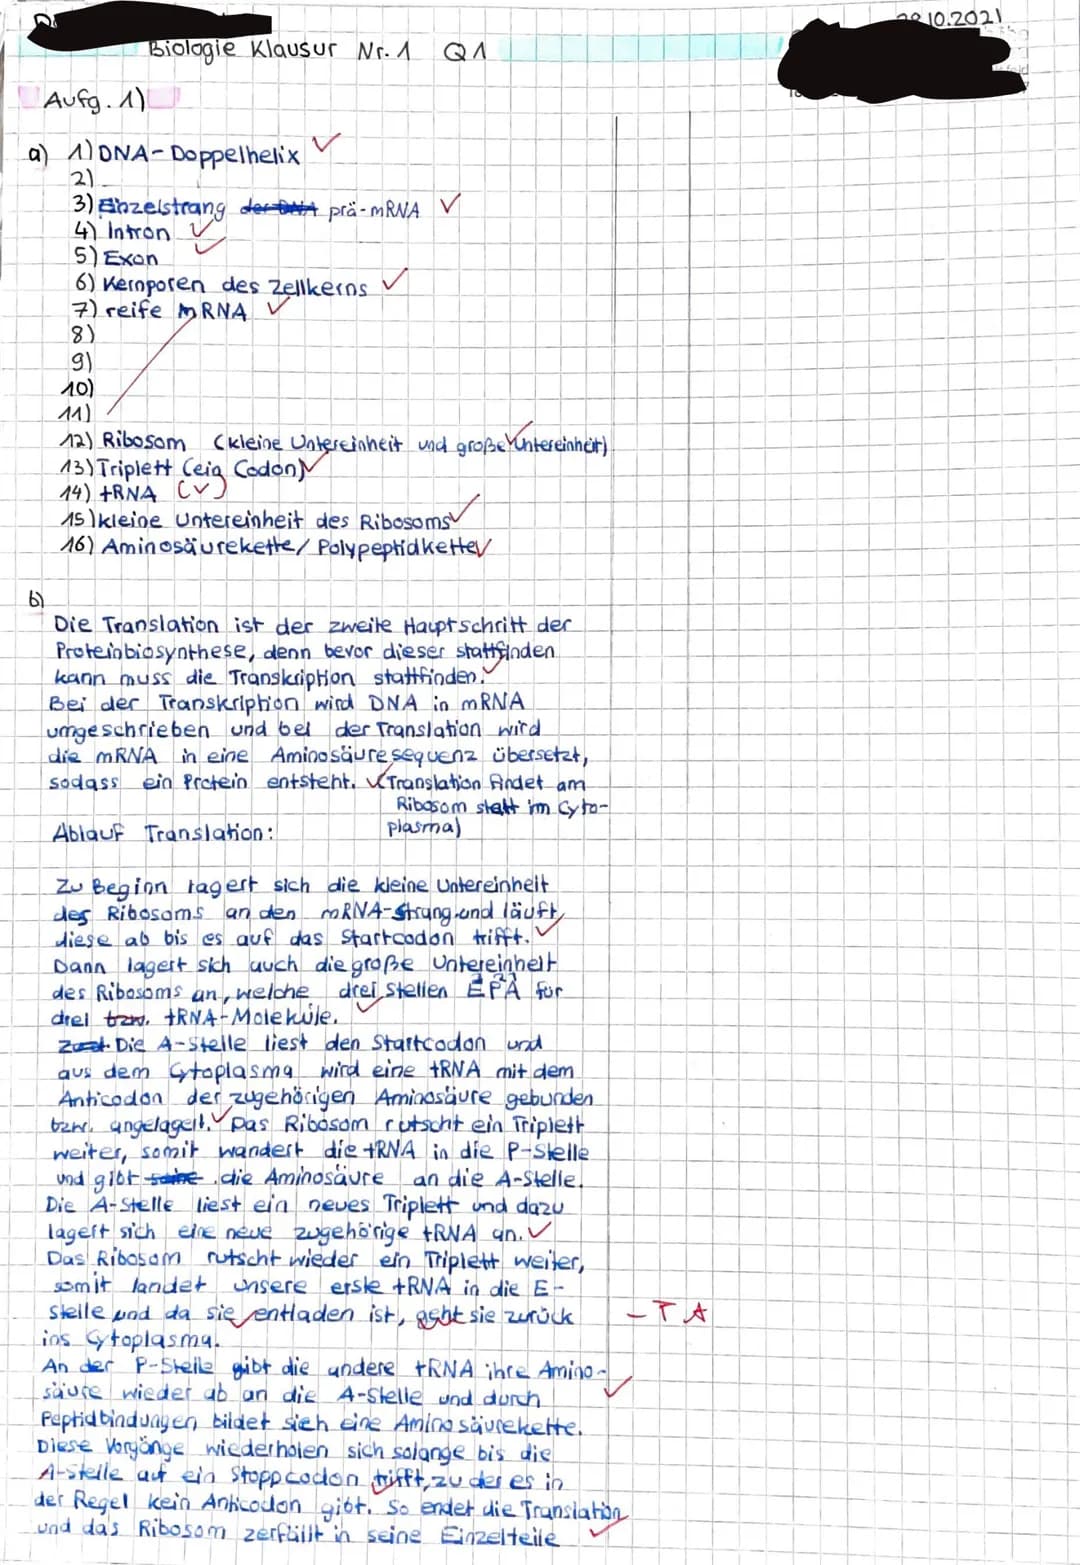 10.2021
Biologie Klausur Nr. 1 Q1
Aufg. 1)
a) 1) DNA-Doppelhelix ✓
2)
3) Einzelstrang prä-mRNA ✓
4) Intron ✓
5) Exon ✓
6) Kernporen des Zellkerns ✓
7) reife mRNA ✓
8)
9)
10)
11)
12) Ribosom (kleine Untereinheit und große Untereinheit) ✓
13) Triplett (ein Codon) ✓
14) tRNA (✓)
15) kleine Untereinheit des Ribosoms ✓
16) Aminosäurekette/Polypeptidkette ✓
b)
Die Translation ist der zweite Hauptschritt der
Proteinbiosynthese, denn bevor dieser stattfinden
kann muss die Transkription stattfinden. ✓
Bei der Transkription wird DNA in mRNA
umgeschrieben und bei der Translation wird
die mRNA in eine Aminosäuresequenz übersetzt,
sodass ein Protein entsteht. ✓ (Translation findet am
Ribosom statt im Cyto-
plasma)
Ablauf Translation:
Zu Beginn lagert sich die kleine Untereinheit
des Ribosoms an den mRNA-Strang und läuft
diese ab bis es auf das Startcodon trifft. ✓
Dann lagert sich auch die große Untereinheit
des Ribosoms an, welche drei Stellen EPA für
drei bzw. tRNA-Moleküle. ✓
Die A-Stelle liest den Startcodon und
aus dem Cytoplasma wird eine tRNA mit dem
Anticodon der zugehörigen Aminosäure gebunden
bzw. angelagert. ✓ Das Ribosom rutscht ein Triplett
weiter, somit wandert die tRNA in die P-Stelle
und gibt seine die Aminosäure an die A-Stelle.
Die A-Stelle liest ein neues Triplett und dazu
lagert sich eine neue zugehörige tRNA an. ✓
Das Ribosom rutscht wieder ein Triplett weiter,
somit landet unsere erste tRNA in die E-
stelle und da sie entladen ist, geht sie zurück - T A
ins Cytoplasma.
An der P-Stelle gibt die andere tRNA ihre Amino-
säure wieder ab an die A-Stelle und durch ✓
Peptidbindungen bildet sich eine Aminosäurekette.
Diese Vorgänge wiederholen sich solange bis die
A-Stelle auf ein Stoppcodon trifft, zu der es in
der Regel kein Anticodon gibt. So endet die Translation
und das Ribosom zerfällt in seine Einzelteile ✓